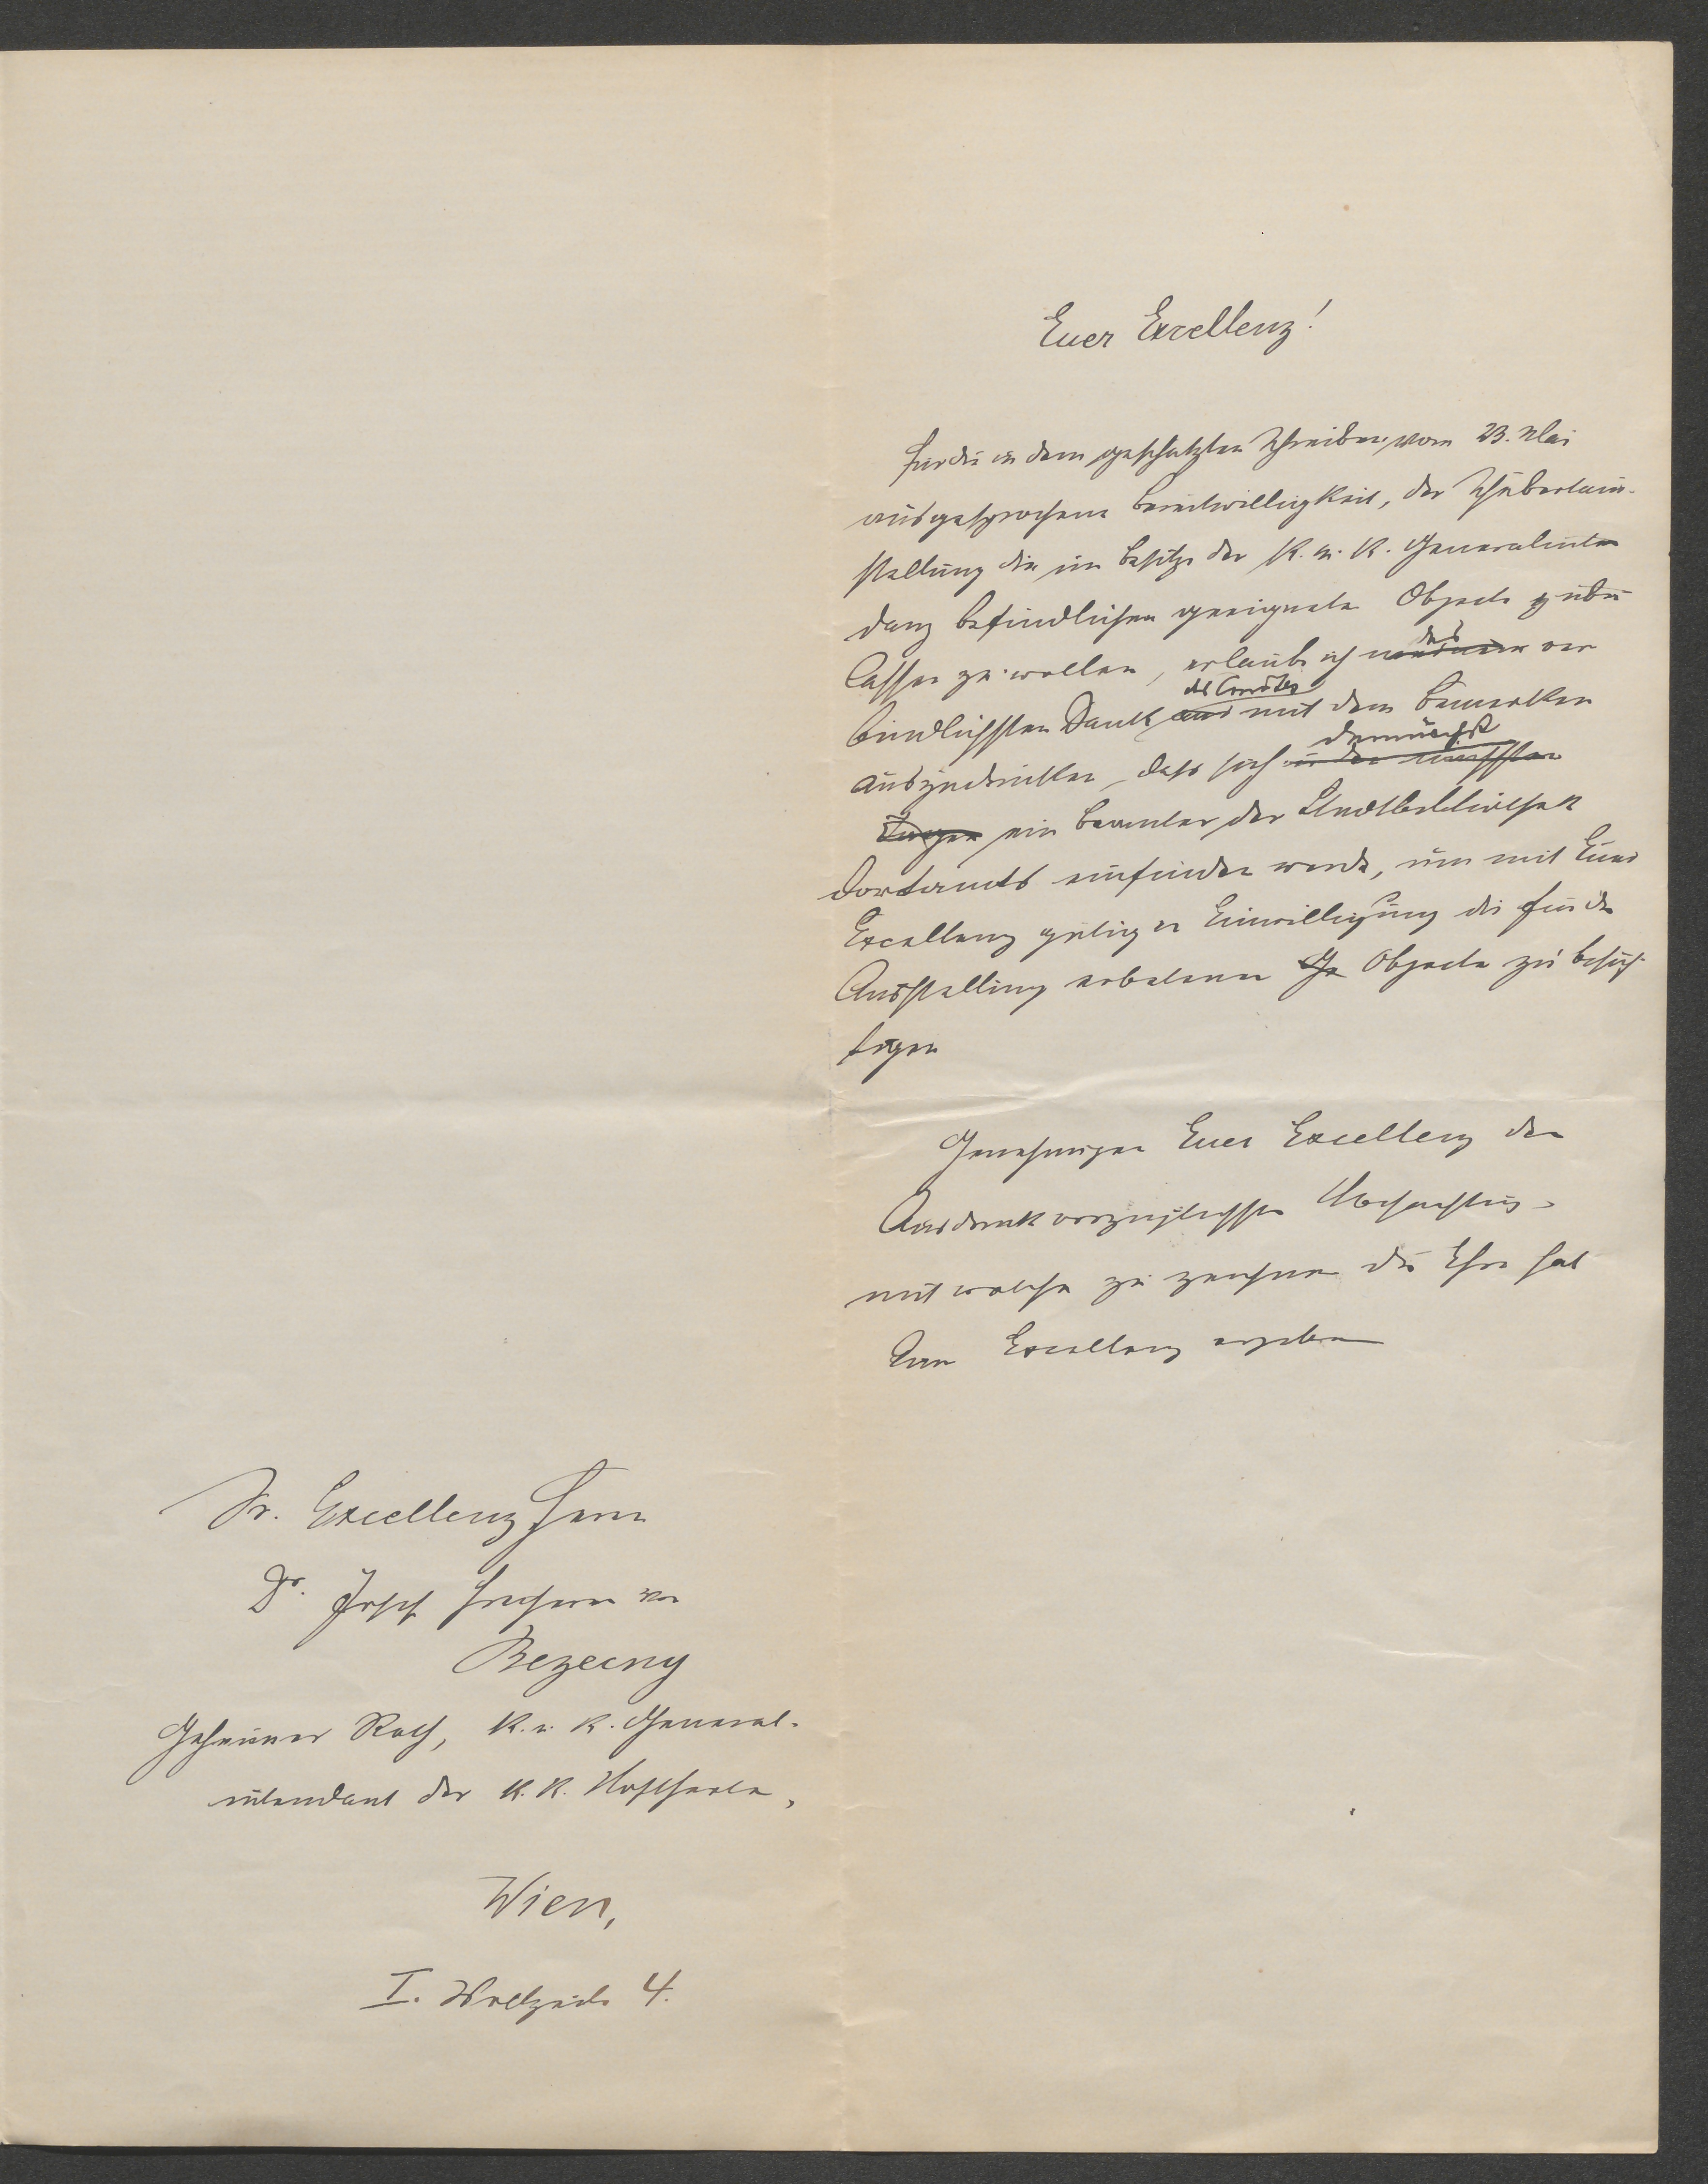 Euer Excellenz!
Für die in dem geschätzten Schreiben vom 23. Mai
ausgesprochene Bereitwilligkeit, der Schubertaus-
stellung die im Besitze der K. u. K. Generalinten
danz befindlichen geeigneten Objecte zu über
lassen zu wollen, erlaube ich den ver
bindlichsten Dank des Comités mit dem Bemerken
auszudrücken, dass sich demnächst
ein Beamter der Stadtbibliothek
dortamts einfinden werde, um mit Euer
Excellenz gütiger Einwilligung die für die
Ausstellung erbetenen Objecte zu besich-
tigen
Genehmigen Euer Excellenz den
Ausdruck vorzüglichster Hochachtung,
mit welcher zu zeichnen die Ehre hat
Euer Excellenz ergebener
Sr. Excellenz Herrn
Dr. Josef Freiherrn von
Bezecny
Geheimer Rath, K. u. K. General-
intendant der K. K. Hoftheater,
Wien,
I. Wollzeile 4.